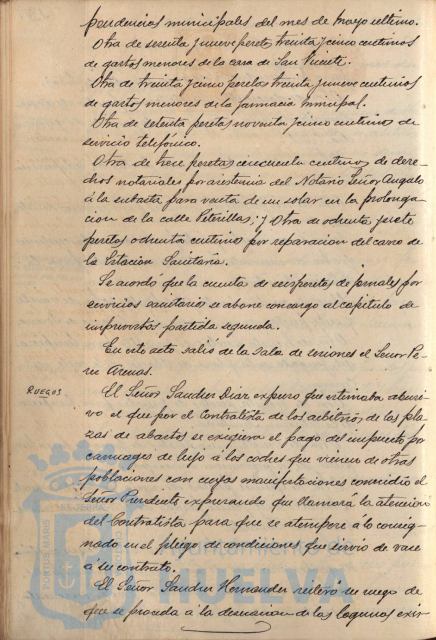 pendencias municipales del mes de Mayo ultimo.
Otra de sesenta y nueve pesetas treinta y cinco centimos
de gastos menores de la casa de San Vicente.
Otra de treinta y cinco pesetas treinta y nueve centimos
de gastos menores de la farmacia municipal.
Otra de setenta pesetas noventa y cinco centimos de
servicio telefónico.
Otra de trece pesetas cincuenta centimos de dere-
chos notariales por asistencia del Notario Señor Angulo
á la subasta para venta de un solar en la prolonga-
cion de la calle Peterillas; y Otra de ochenta y siete
pesetas ochenta centimos por reparacion del carro de
la Estacion Sanitaria.
Se acordó que la cuenta de seis pesetas de jornales por
servicios sanitarios se abone con cargo al capitulo de
imprevistos partida segunda.
En este acto salió de la sala de sesiones el Señor Pe-
rez Arenas.
RUEGOS
El Señor Sanchez Diaz expuso que estimaba abusi-
vo el que por el Contratista de los arbitrios de las pla-
zas de abastos se exigiera el pago del impuesto por
carruages de lujo á los coches que vienen de otras
poblaciones con cuyas manifestaciones coincidió el
Señor Presidente expresando que llamará la atencion
del Contratista para que se atempere á lo consig-
nado en el pliego de condiciones que sirvió de base
á su contrato.
El Señor Sanchez Hernandez reiteró su ruego de
que se proceda á la desecacion de las lagunas exis-
PORTUS MARIS
HUELVA